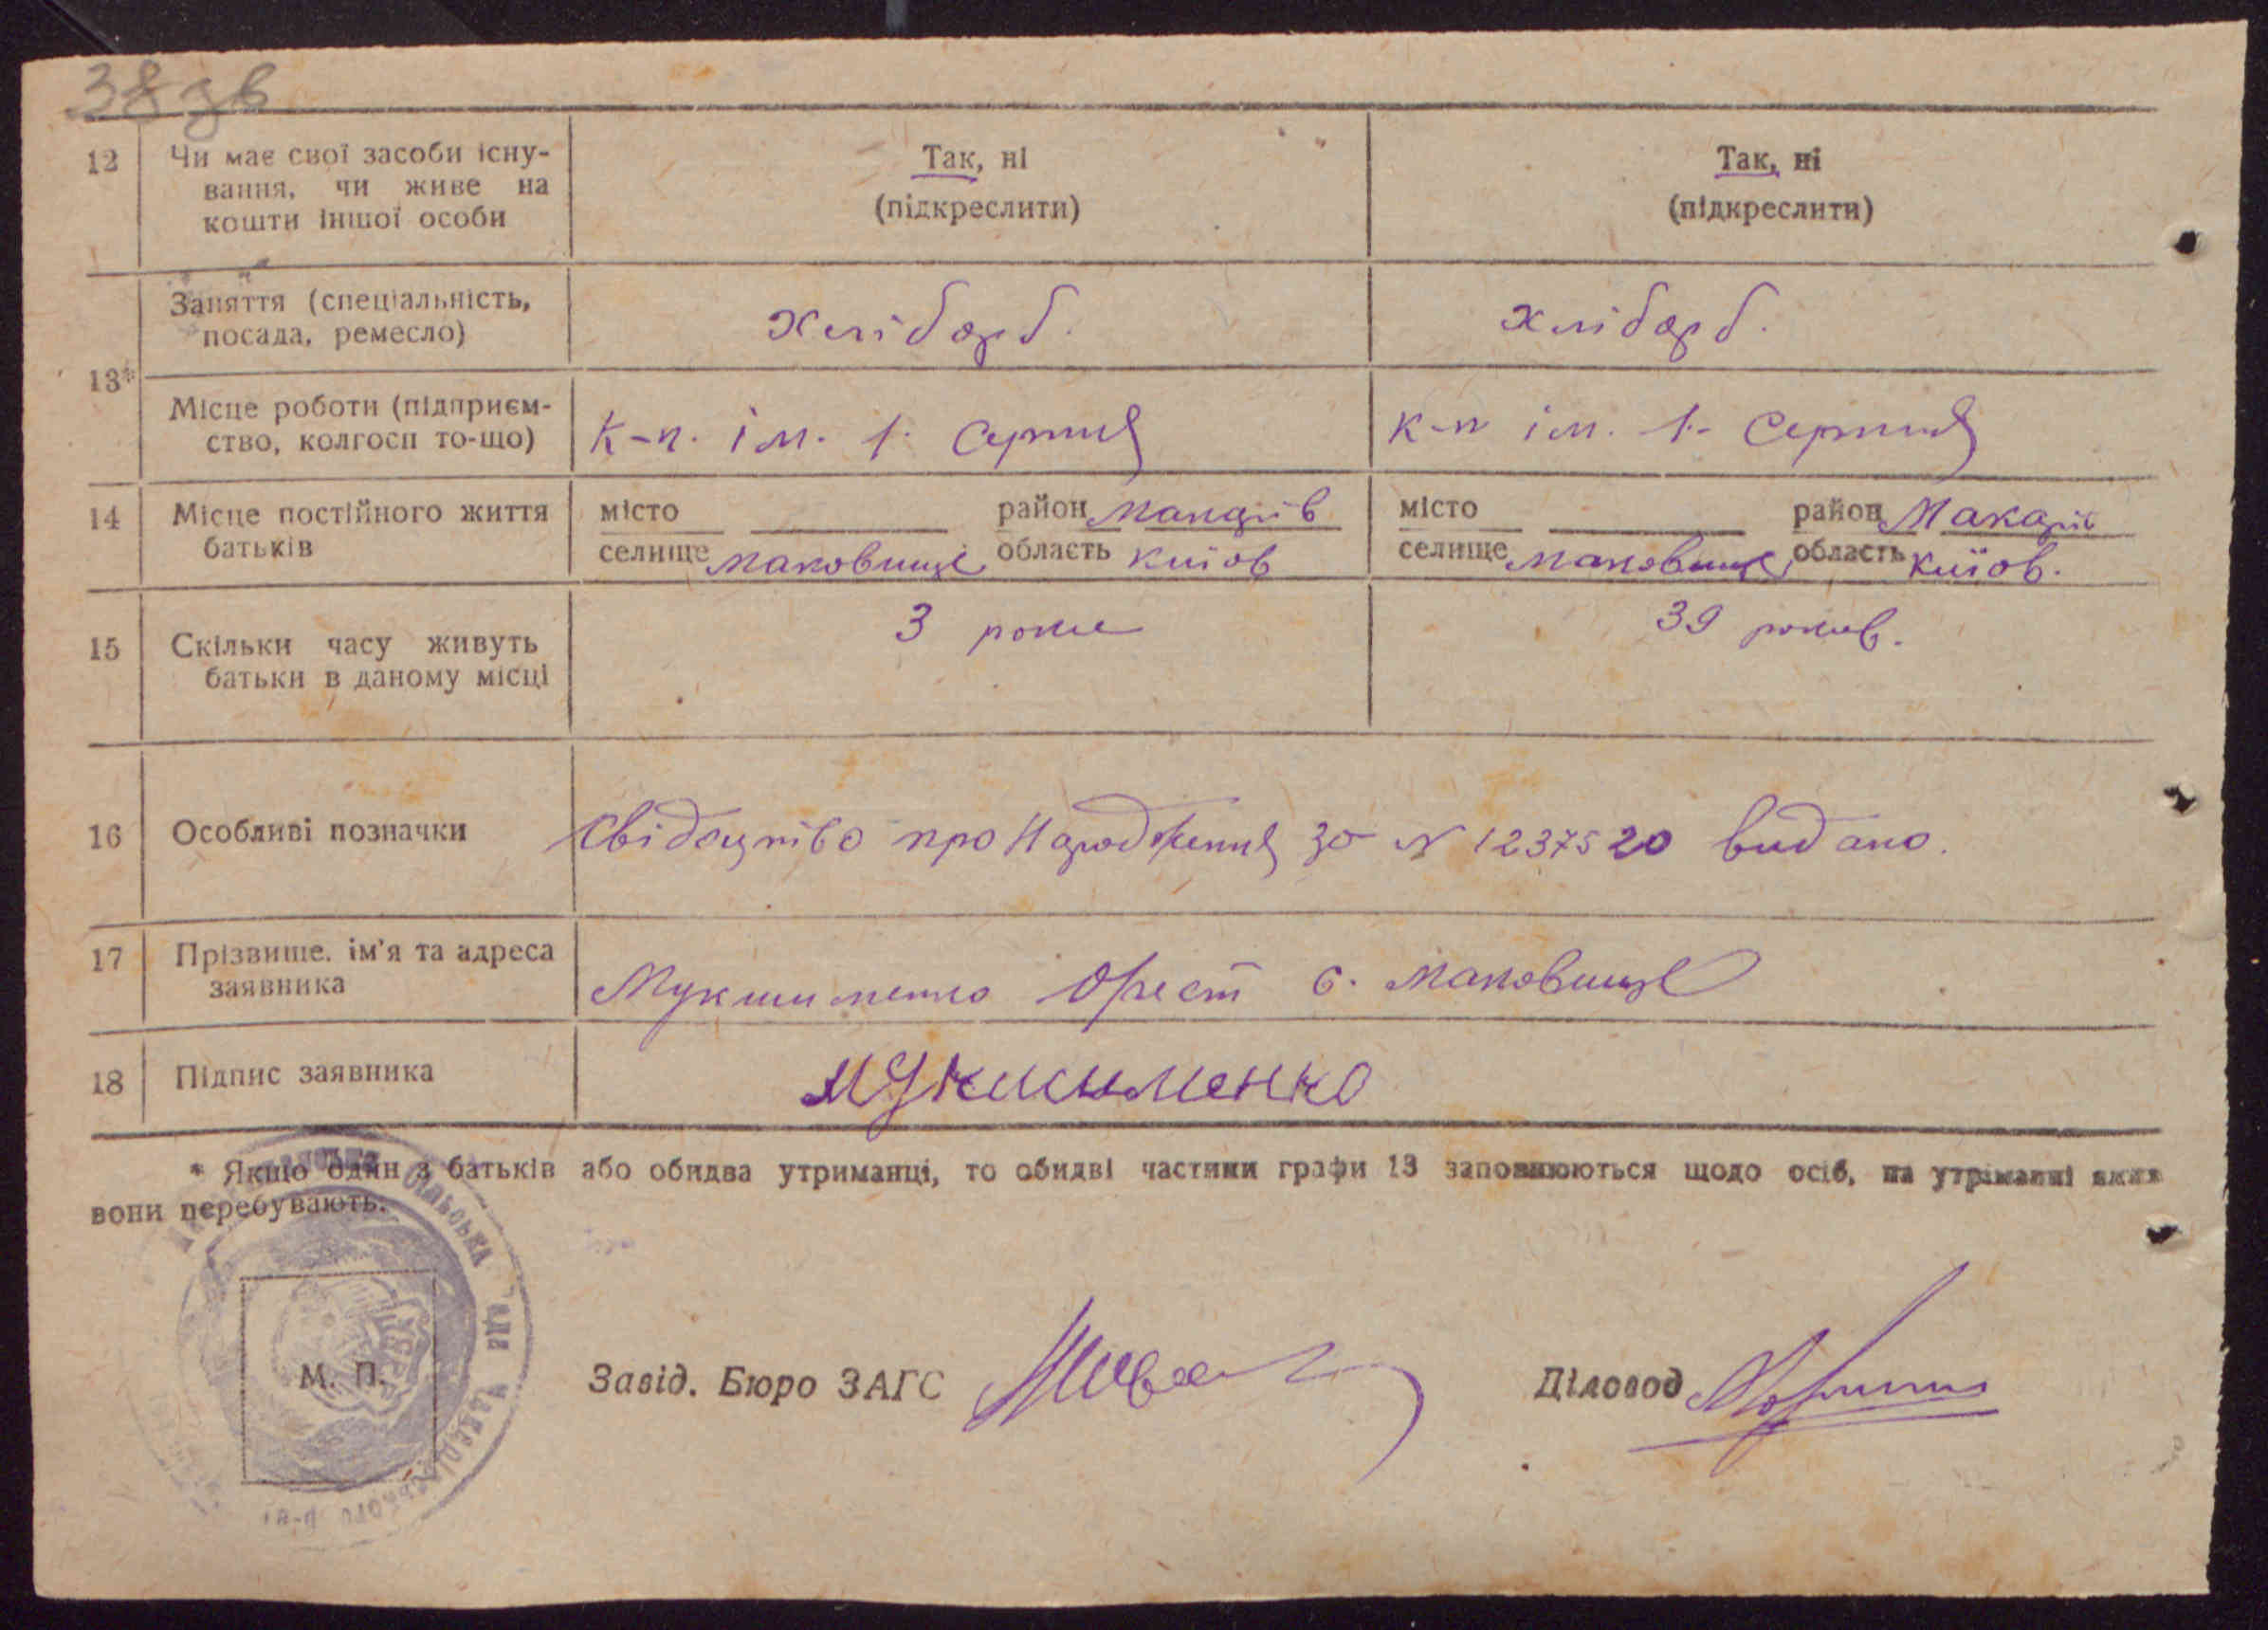 38 зв
12 Чи має свої засоби існу- Так, ні Так, ні
вання, чи живе на (підкреслити) (підкреслити)
кошти іншої особи
Заняття (спеціальність, хлібороб. хлібороб.
посада, ремесло)
13*
Місце роботи (підприєм- К-п. ім. 1. Серпня к-п ім. 1- Серпня
ство, колгосп то-що)
14 Місце постійного життя місто район Макарів місто район Макарів
батьків селище Маковище область Київ об селище Маковище область Київ об.
15 Скільки часу живуть 3 роки 39 років.
батьки в даному місці
16 Особливі позначки Свідоцтво про Народження за № 1237520 видано.
17 Прізвище, ім'я та адреса Мукшименко Орест с. Маковище
заявника
18 Підпис заявника Мукшименко
* Якщо один з батьків або обидва утриманці, то обидві частини графи 13 заповнюються щодо осіб, на утриманні яких
вони перебувають.
сільська рада Макарівського р-ну
УСРР
М. П. Завід. Бюро ЗАГС Діловод